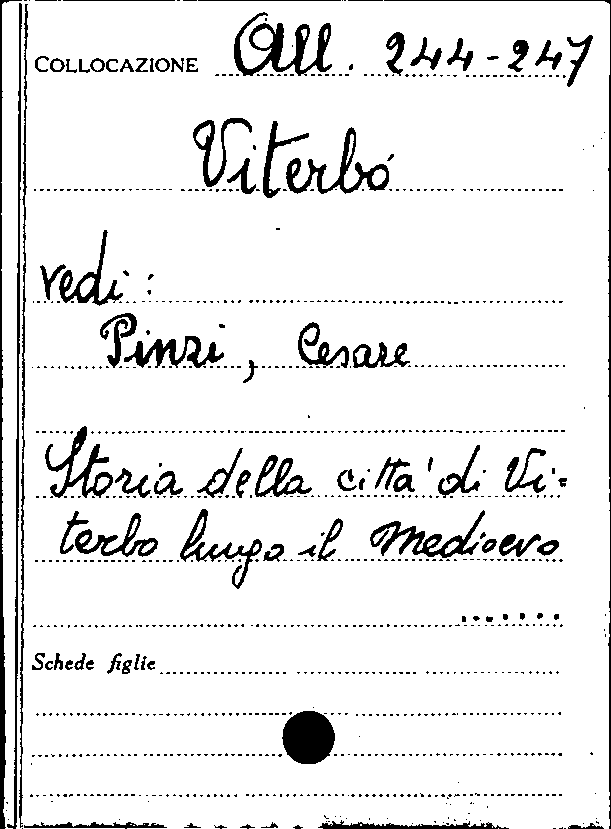 COLLOCAZIONE All. 244-247
Viterbo
vedi:
Pinzi, Cesare
Storia della citta' di Vi=
terbo lungo il Medioevo
.......
Schede figlie